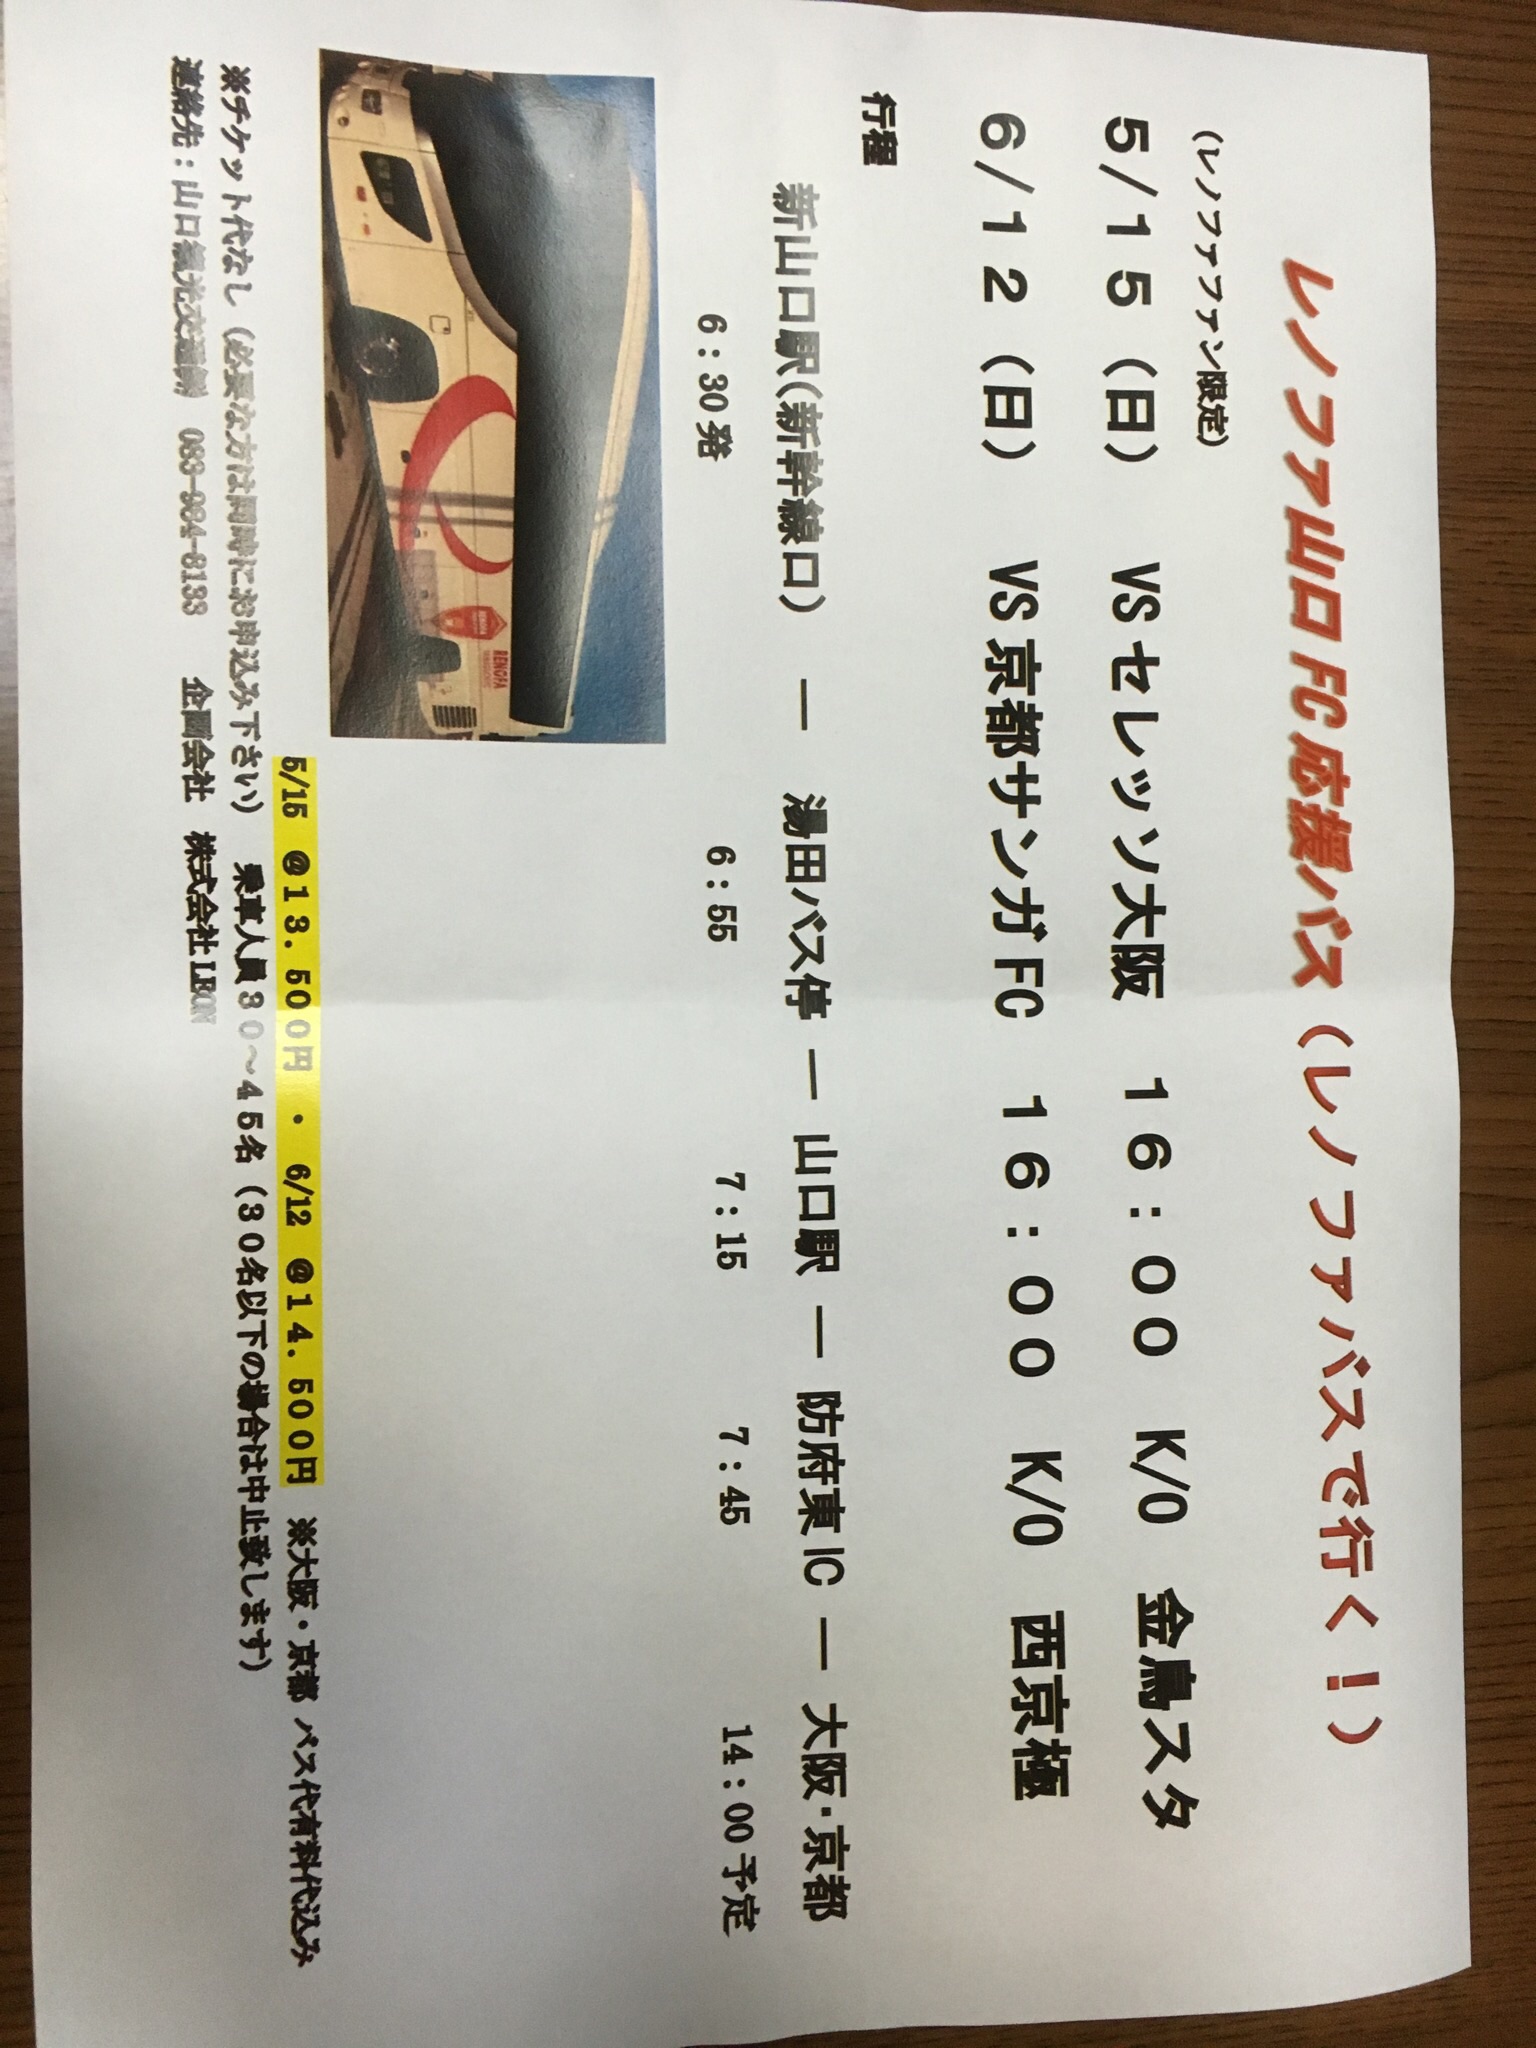 レノファ山口 FC 応援バス（レノファバスで行く！）
（レノファファン限定）
５/１５（日） VS セレッソ大阪 １６：００ K/O 金鳥スタ
６/１２（日） VS 京都サンガ FC １６：００ K/O 西京極
行程
新山口駅（新幹線口） ― 湯田バス停 ― 山口駅 ― 防府東 IC ― 大阪・京都
6：30 発 6：55 7：15 7：45 14：00 予定
RENOFA
5/15 @１３．５００円 ・ 6/12 @１４．５００円 ※大阪・京都 バス代有料代込み
※チケット代なし（必要な方は同時にお申込み下さい） 乗車人員３０～４５名（３０名以下の場合は中止致します）
連絡先：山口観光交通㈱ 083-934-8133 企画会社 株式会社 LEON